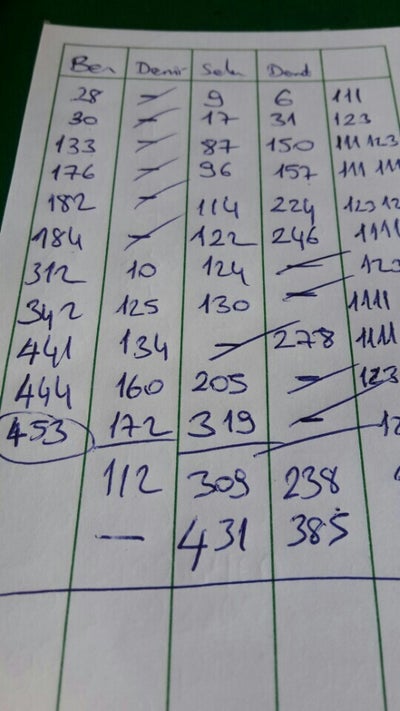 Ben Demir Selin
28 — 9 6 111
30 — 17 31 123
133 — 87 150 111 123
176 — 96 157 111 111
182 — 114 224 123
184 — 122 246 1111
312 10 124 — 123
342 125 130 — 1111
441 134 — 278 1111
444 160 205 — 123
453 172 319 —
112 309 238
— 431 385